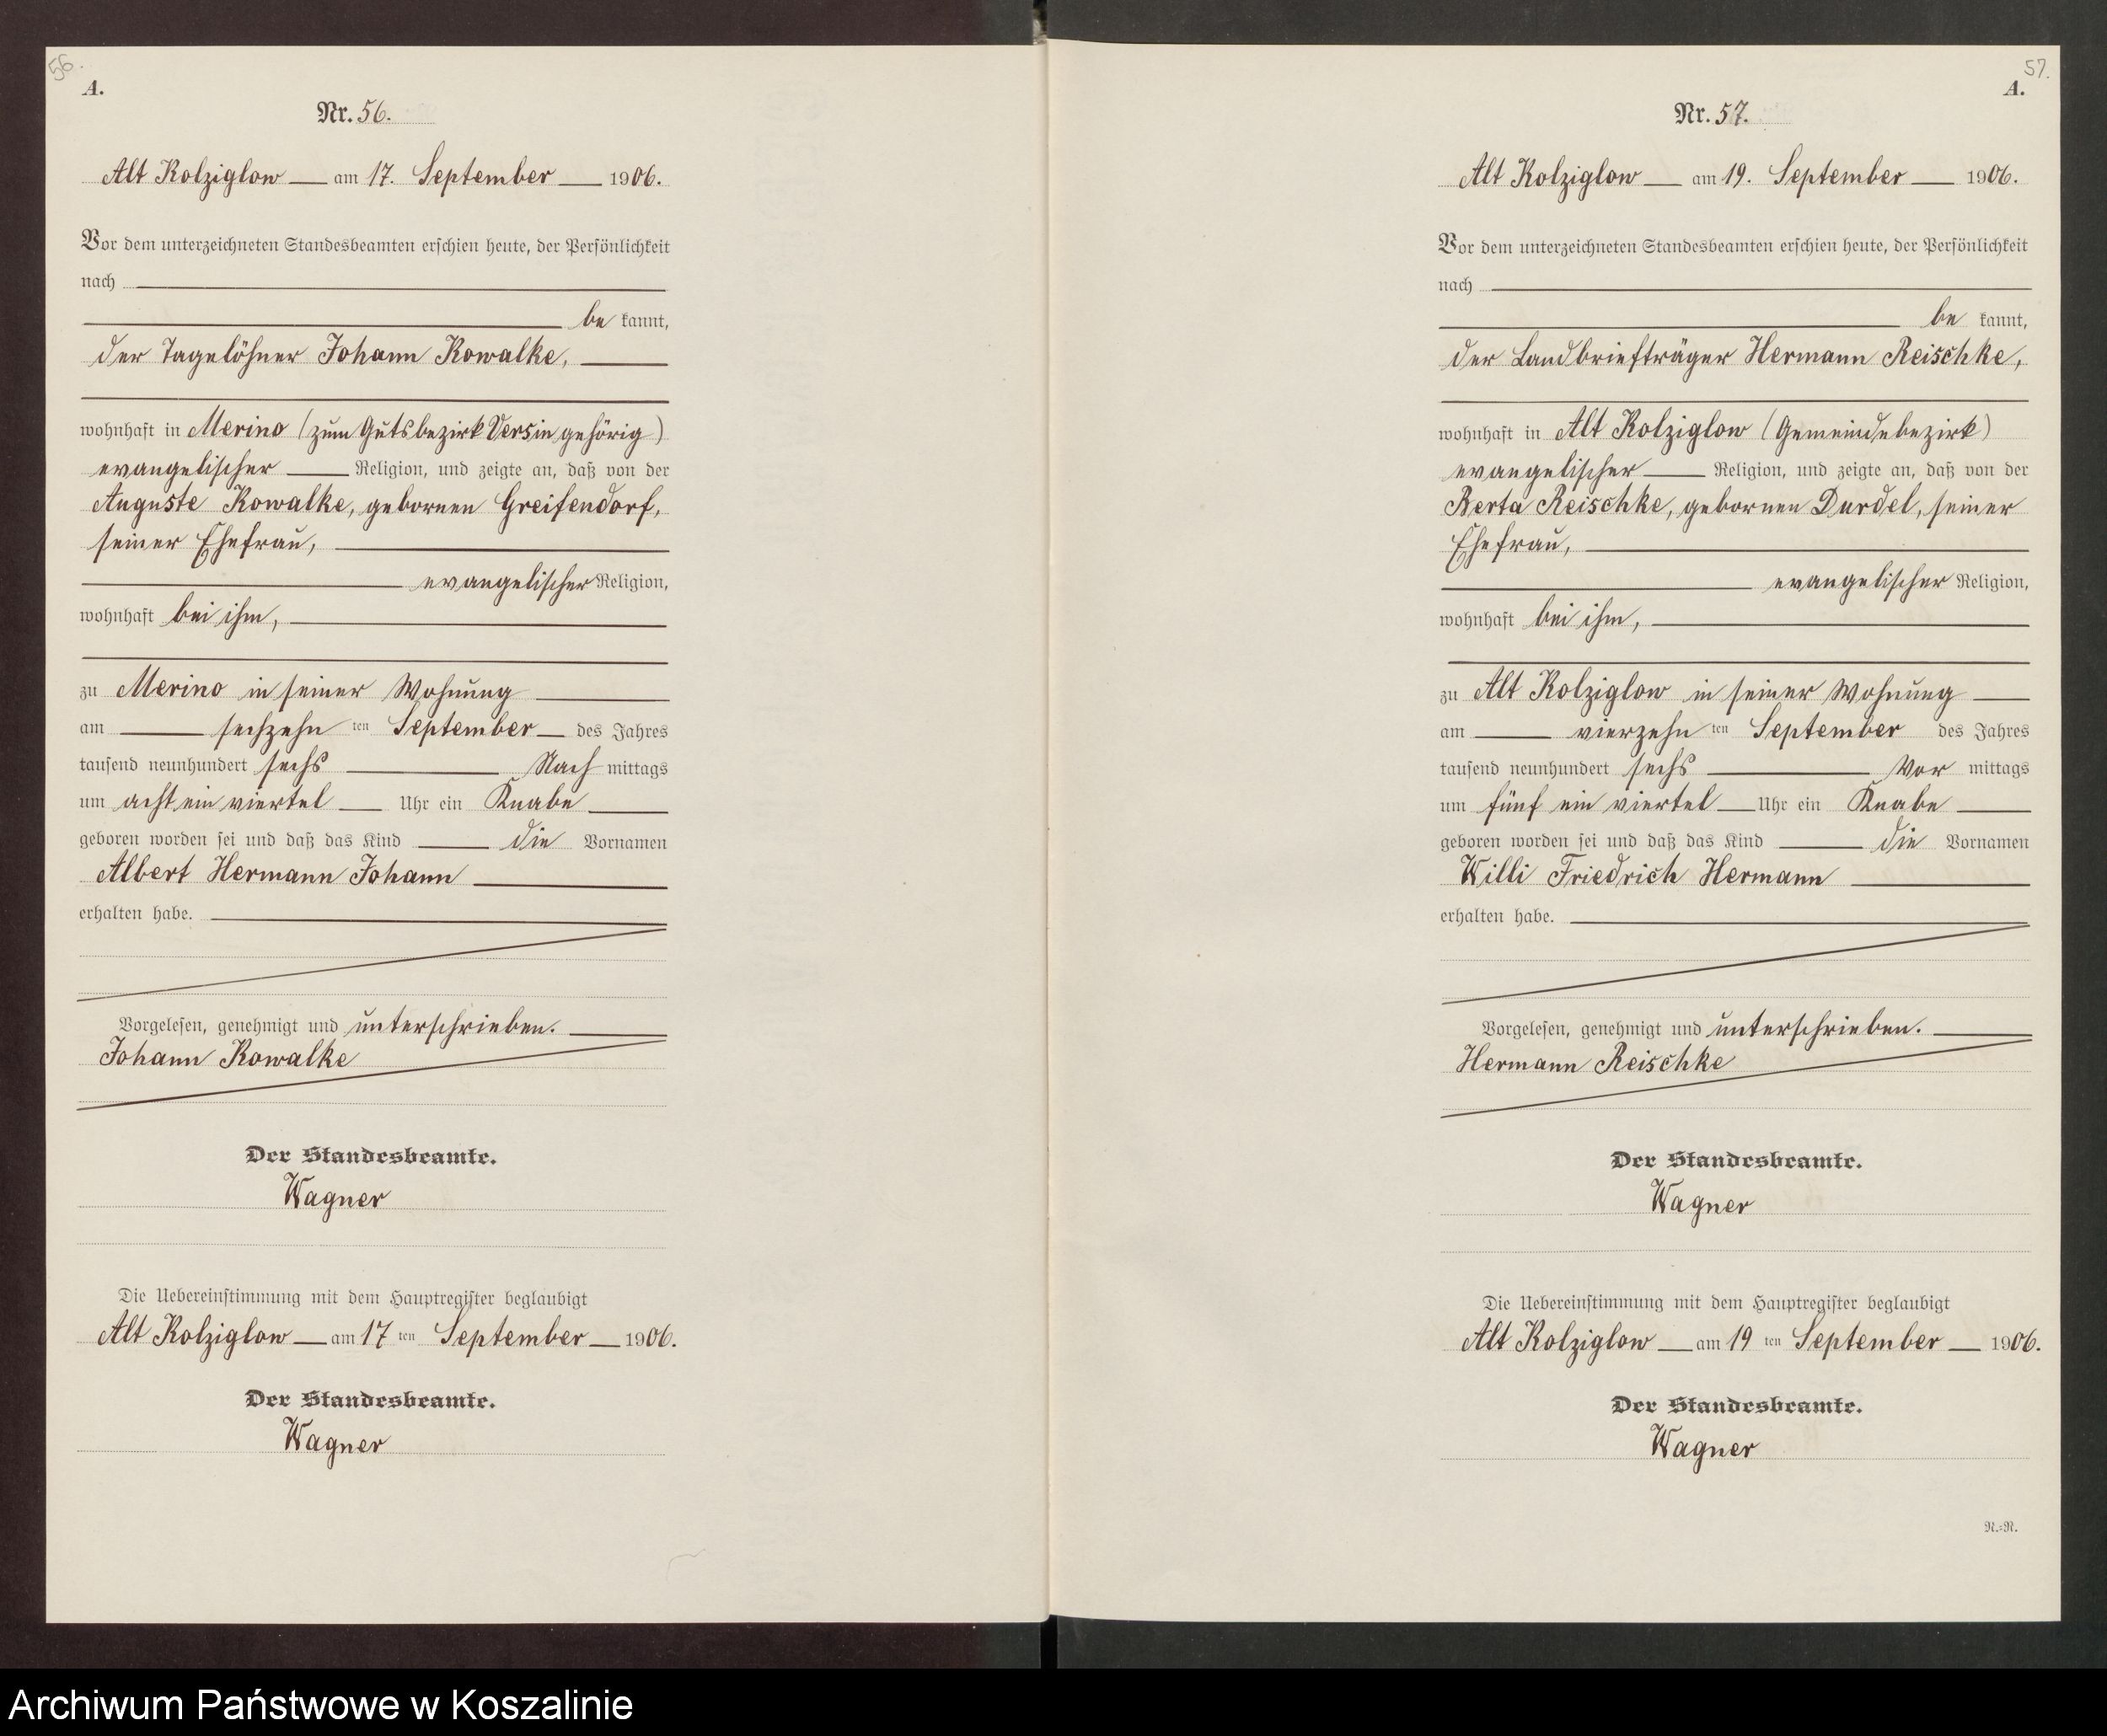 56.
A.
Nr. 56.
Alt Kolziglow am 17. September 1906.
Vor dem unterzeichneten Standesbeamten erschien heute, der Persönlichkeit
nach
be kannt,
der Tagelöhner Johann Kowalke,
wohnhaft in Merino (zum Gutsbezirk Versin gehörig)
evangelischer Religion, und zeigte an, daß von der
Auguste Kowalke, gebornen Greifendorf,
seiner Ehefrau,
evangelischer Religion,
wohnhaft bei ihm,
zu Merino in seiner Wohnung
am sechzehn ten September des Jahres
tausend neunhundert sechs Nach mittags
um acht ein viertel Uhr ein Knabe
geboren worden sei und daß das Kind die Vornamen
Albert Hermann Johann
erhalten habe.
Vorgelesen, genehmigt und unterschrieben.
Johann Kowalke
Der Standesbeamte.
Wagner
Die Uebereinstimmung mit dem Hauptregister beglaubigt
Alt Kolziglow am 17 ten September 1906.
Der Standesbeamte.
Wagner
57.
A.
Nr. 57.
Alt Kolziglow am 19. September 1906.
Vor dem unterzeichneten Standesbeamten erschien heute, der Persönlichkeit
nach
be kannt,
der Landbriefträger Hermann Reischke,
wohnhaft in Alt Kolziglow (Gemeindebezirk)
evangelischer Religion, und zeigte an, daß von der
Berta Reischke, gebornen Durdel, seiner
Ehefrau,
evangelischer Religion,
wohnhaft bei ihm,
zu Alt Kolziglow in seiner Wohnung
am vierzehn ten September des Jahres
tausend neunhundert sechs Vor mittags
um fünf ein viertel Uhr ein Knabe
geboren worden sei und daß das Kind die Vornamen
Willi Friedrich Hermann
erhalten habe.
Vorgelesen, genehmigt und unterschrieben.
Hermann Reischke
Der Standesbeamte.
Wagner
Die Uebereinstimmung mit dem Hauptregister beglaubigt
Alt Kolziglow am 19 ten September 1906.
Der Standesbeamte.
Wagner
N.=N.
Archiwum Państwowe w Koszalinie